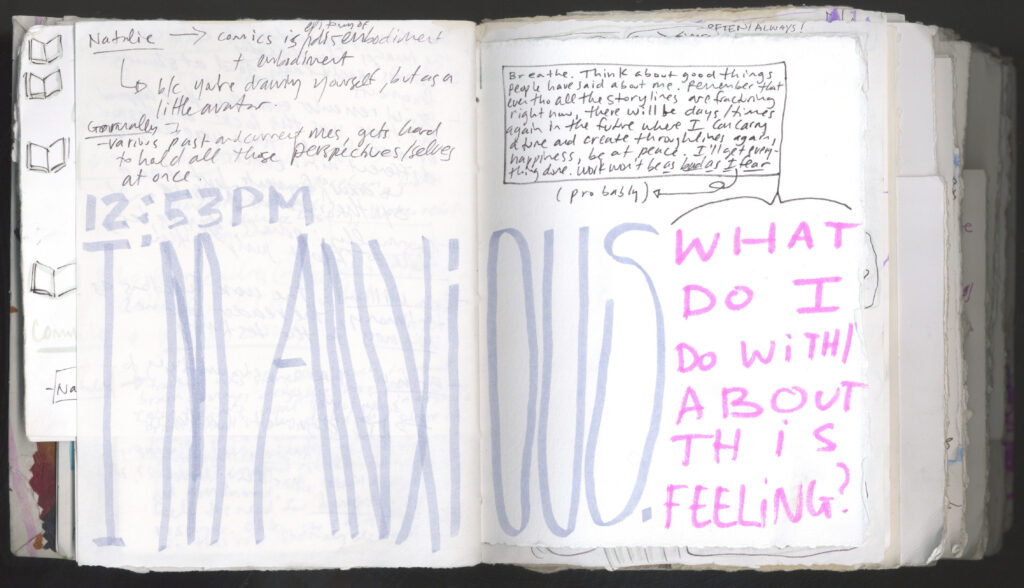 Natalie → comics is
embodiment
+ embodiment
↳ b/c you're drawing yourself, but as a
little avatar.
Generally
- various past and current mes, gets hard
to hold all those perspectives/selves
at once.
12:53PM
I'M ANXIOUS.
Na
OFTEN/ALWAYS!
Breathe. Think about good things
people have said about me. Remember that
even tho all the storylines are fracturing
right now, there will be days/times
again in the future where I can carry
a tune and create throughlines again,
happiness, be at peace. I'll get every-
thing done. Work won't be as bad as I fear
(probably)
WHAT
DO I
DO WiTH/
ABOUT
THiS
FEELiNG?